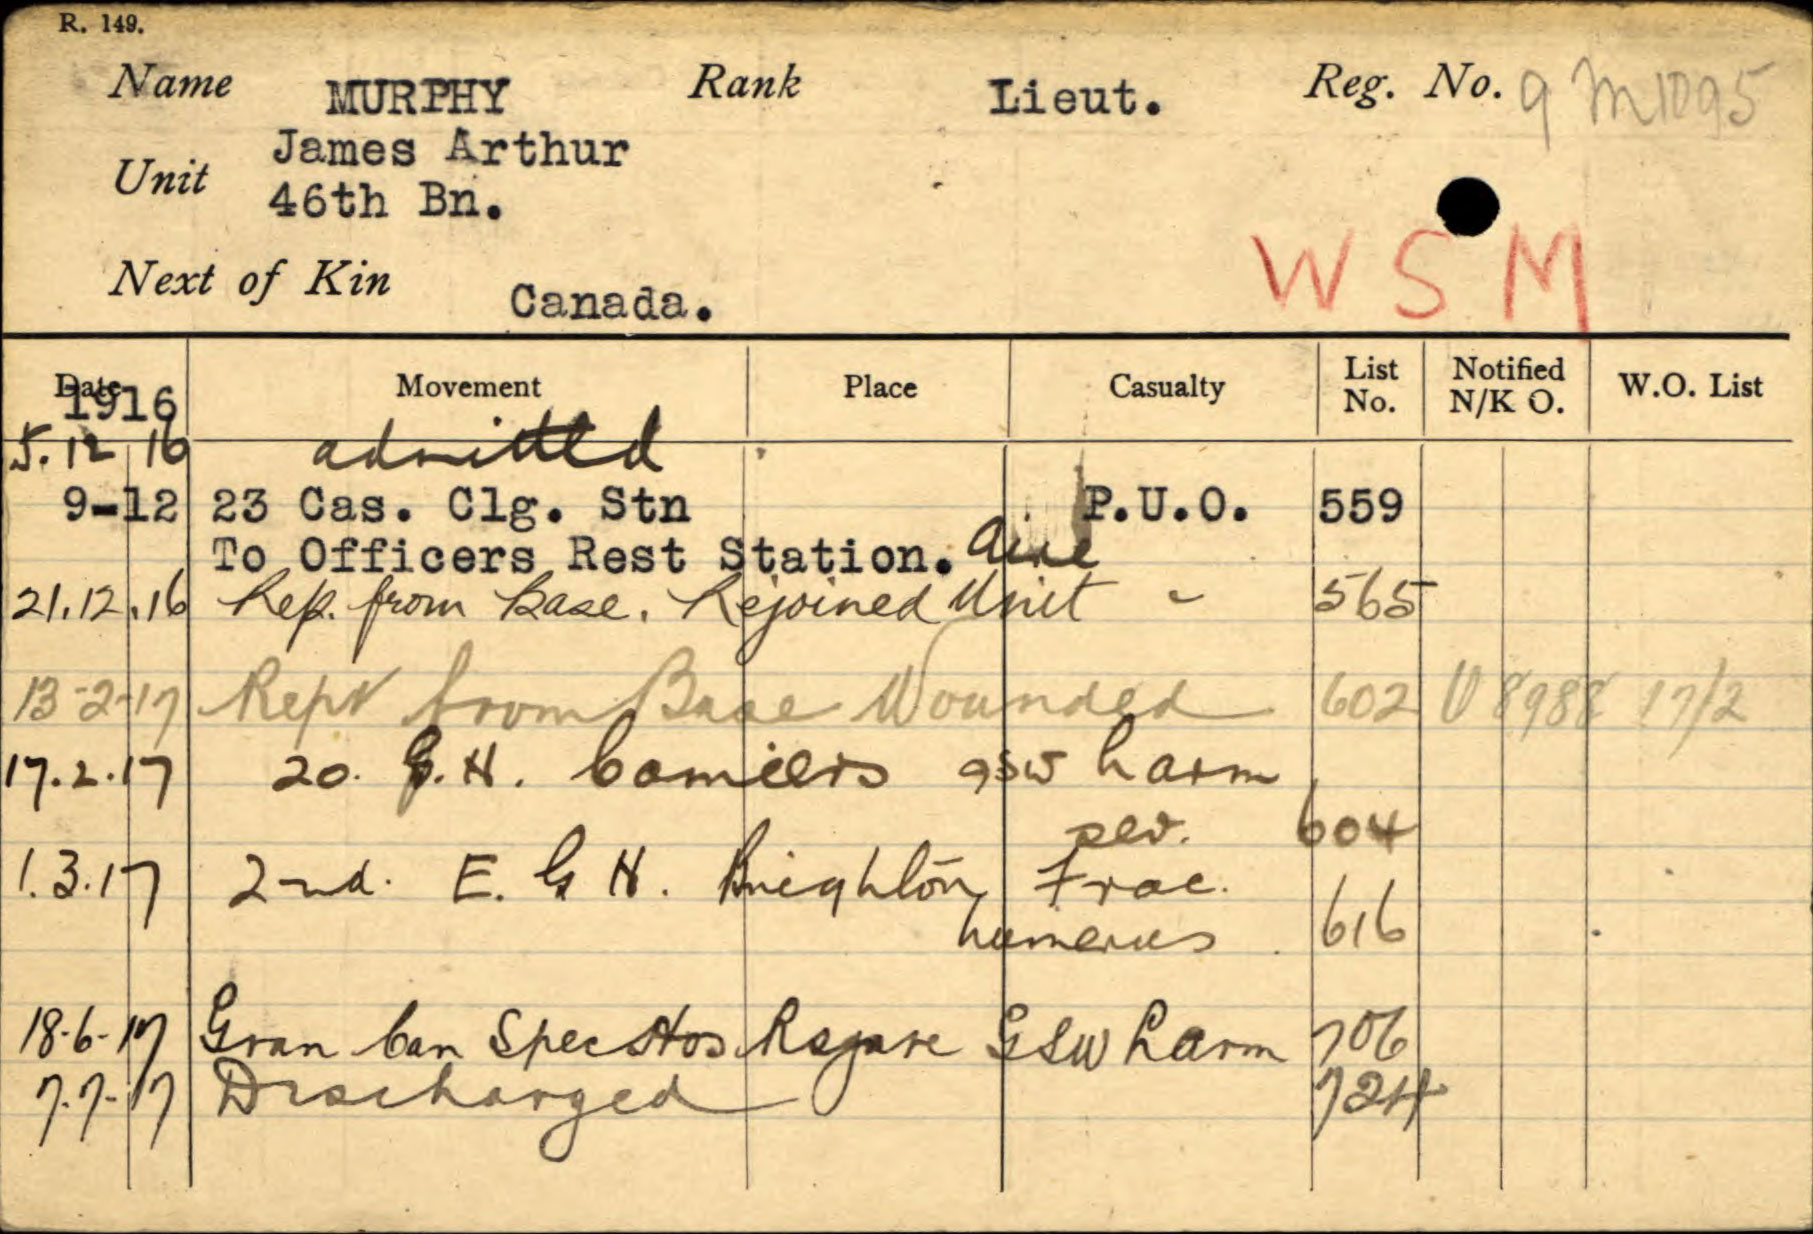 R. 149.
Name MURPHY Rank Lieut. Reg. No. 9 M1095
James Arthur
Unit 46th Bn.
W S M
Next of Kin Canada.
Date Movement Place Casualty List No. Notified N/K O. W.O. List
1916
5.12 16 admitted
9-12 23 Cas. Clg. Stn P.U.O. 559
To Officers Rest Station. Aire
21.12.16 Rep. from Base. Rejoined Unit - 565
13-2-17 Rept from Base Wounded 602 V 8988 17/2
17.2.17 20. G.H. Camiers gsw L arm
sev. 604
1.3.17 2nd. E. G H. Brighton Frac.
humerus 616
18-6-17 Gran Can Spec Hos Rsgate GSW L arm 706
7.7-17 Discharged 724